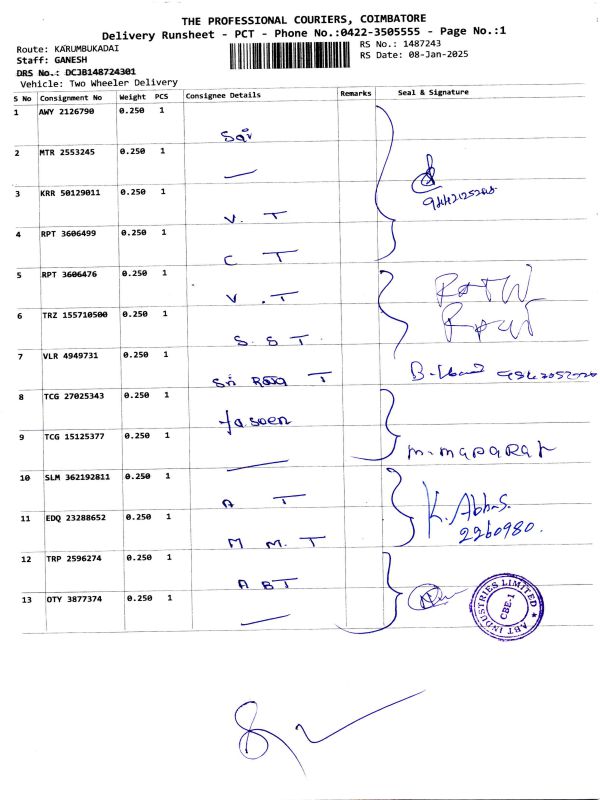 THE PROFESSIONAL COURIERS, COIMBATORE
Delivery Runsheet - PCT - Phone No.:0422-3505555 - Page No.:1
Route: KARUMBUKADAI
RS No.: 1487243
Staff: GANESH
RS Date: 08-Jan-2025
DRS No.: DCJB148724301
Vehicle: Two Wheeler Delivery
S No Consignment No Weight PCS Consignee Details Remarks Seal & Signature
1 AWY 2126790 0.250 1
2 MTR 2553245 0.250 1
3 KRR 50129011 0.250 1
V. T
4 RPT 3606499 0.250 1
C T
5 RPT 3606476 0.250 1
V. T
6 TRZ 155710500 0.250 1
S. S T
7 VLR 4949731 0.250 1
Sri T
8 TCG 27025343 0.250 1
9 TCG 15125377 0.250 1
10 SLM 362192811 0.250 1
A T
K. Abbas.
11 EDQ 23288652 0.250 1
2260980.
M M. T
12 TRP 2596274 0.250 1
A BT
13 OTY 3877374 0.250 1
ABT INDUSTRIES LIMITED
CBE-1